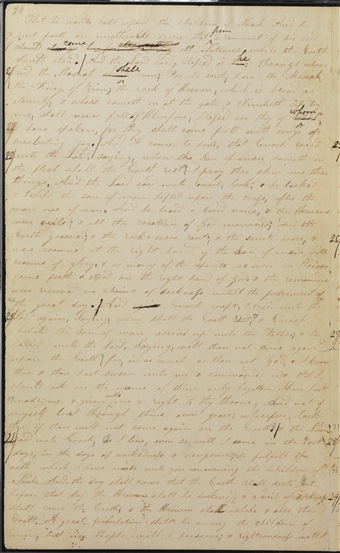 That he would call upon the children of Noah And he
sent forth an unalterable decree that a remnant of his seed
should come all Nations, while the Earth
should stand. And the Lord said, Blessed is he through whose
seed the Messiah shall come; For he saith, I am the Messiah
the King of Zion; the rock of Heaven, which is broad as
Eternity, & whoso cometh in at the gate & climbeth up by
me, shall never fall; Wherefore, Blessed are they of whom
I have spoken, for they shall come forth with songs of
everlasting joy. And it came to pass, that Enoch cried
unto the Lord, saying, when the Son of man cometh in
the flesh shall the Earth rest? I pray thee shew me these
things. And the Lord said unto Enoch, look; & he looked
& beheld the son of man lifted up on the cross, after the
manner of man. And he heard a loud voice, & the Heavens
were veiled; & all the creation of God mourned; and the
Earth groaned; & the rocks were rent; & the saints arose, &
were crowned at the right hand of the Son of man, with
crowns of glory; & as many of the spirits as were in Prison
came forth & stood on the right hand of God; & the remainder
were reserved in chains of darkness until the judgement of
the great day. Enoch wept, & cried unto the
again, saying, when shall the Earth rest? & Enoch
beheld the Son of man ascend up unto the Father; & he
called unto the Lord, saying, wilt thou not come again
upon the Earth? for inasmuch as thou art God, & I know
thee & thou hast sworn unto me & commanded me that I
should ask in the name of thine only begotten thou hast
made me & given unto me a right to thy throne, And not of
myself but through thine own grace; wherefore, I ask
thee if thou wilt not come again on the Earth? & the Lord
said unto Enoch, As I live, even so will I come in the last
days; in the days of wickedness & vengeance, to fulfill the
oath which I have made unto you concerning the Children of
Noah And the day shall come that the Earth shall rest but
before that day the Heavens shall be darkened; & a veil of darkness
shall cover the Earth; & the Heavens shall shake & also the
Earth & great tribulations shall be among the children of
men, but my People will I preserve; & righteousness will I